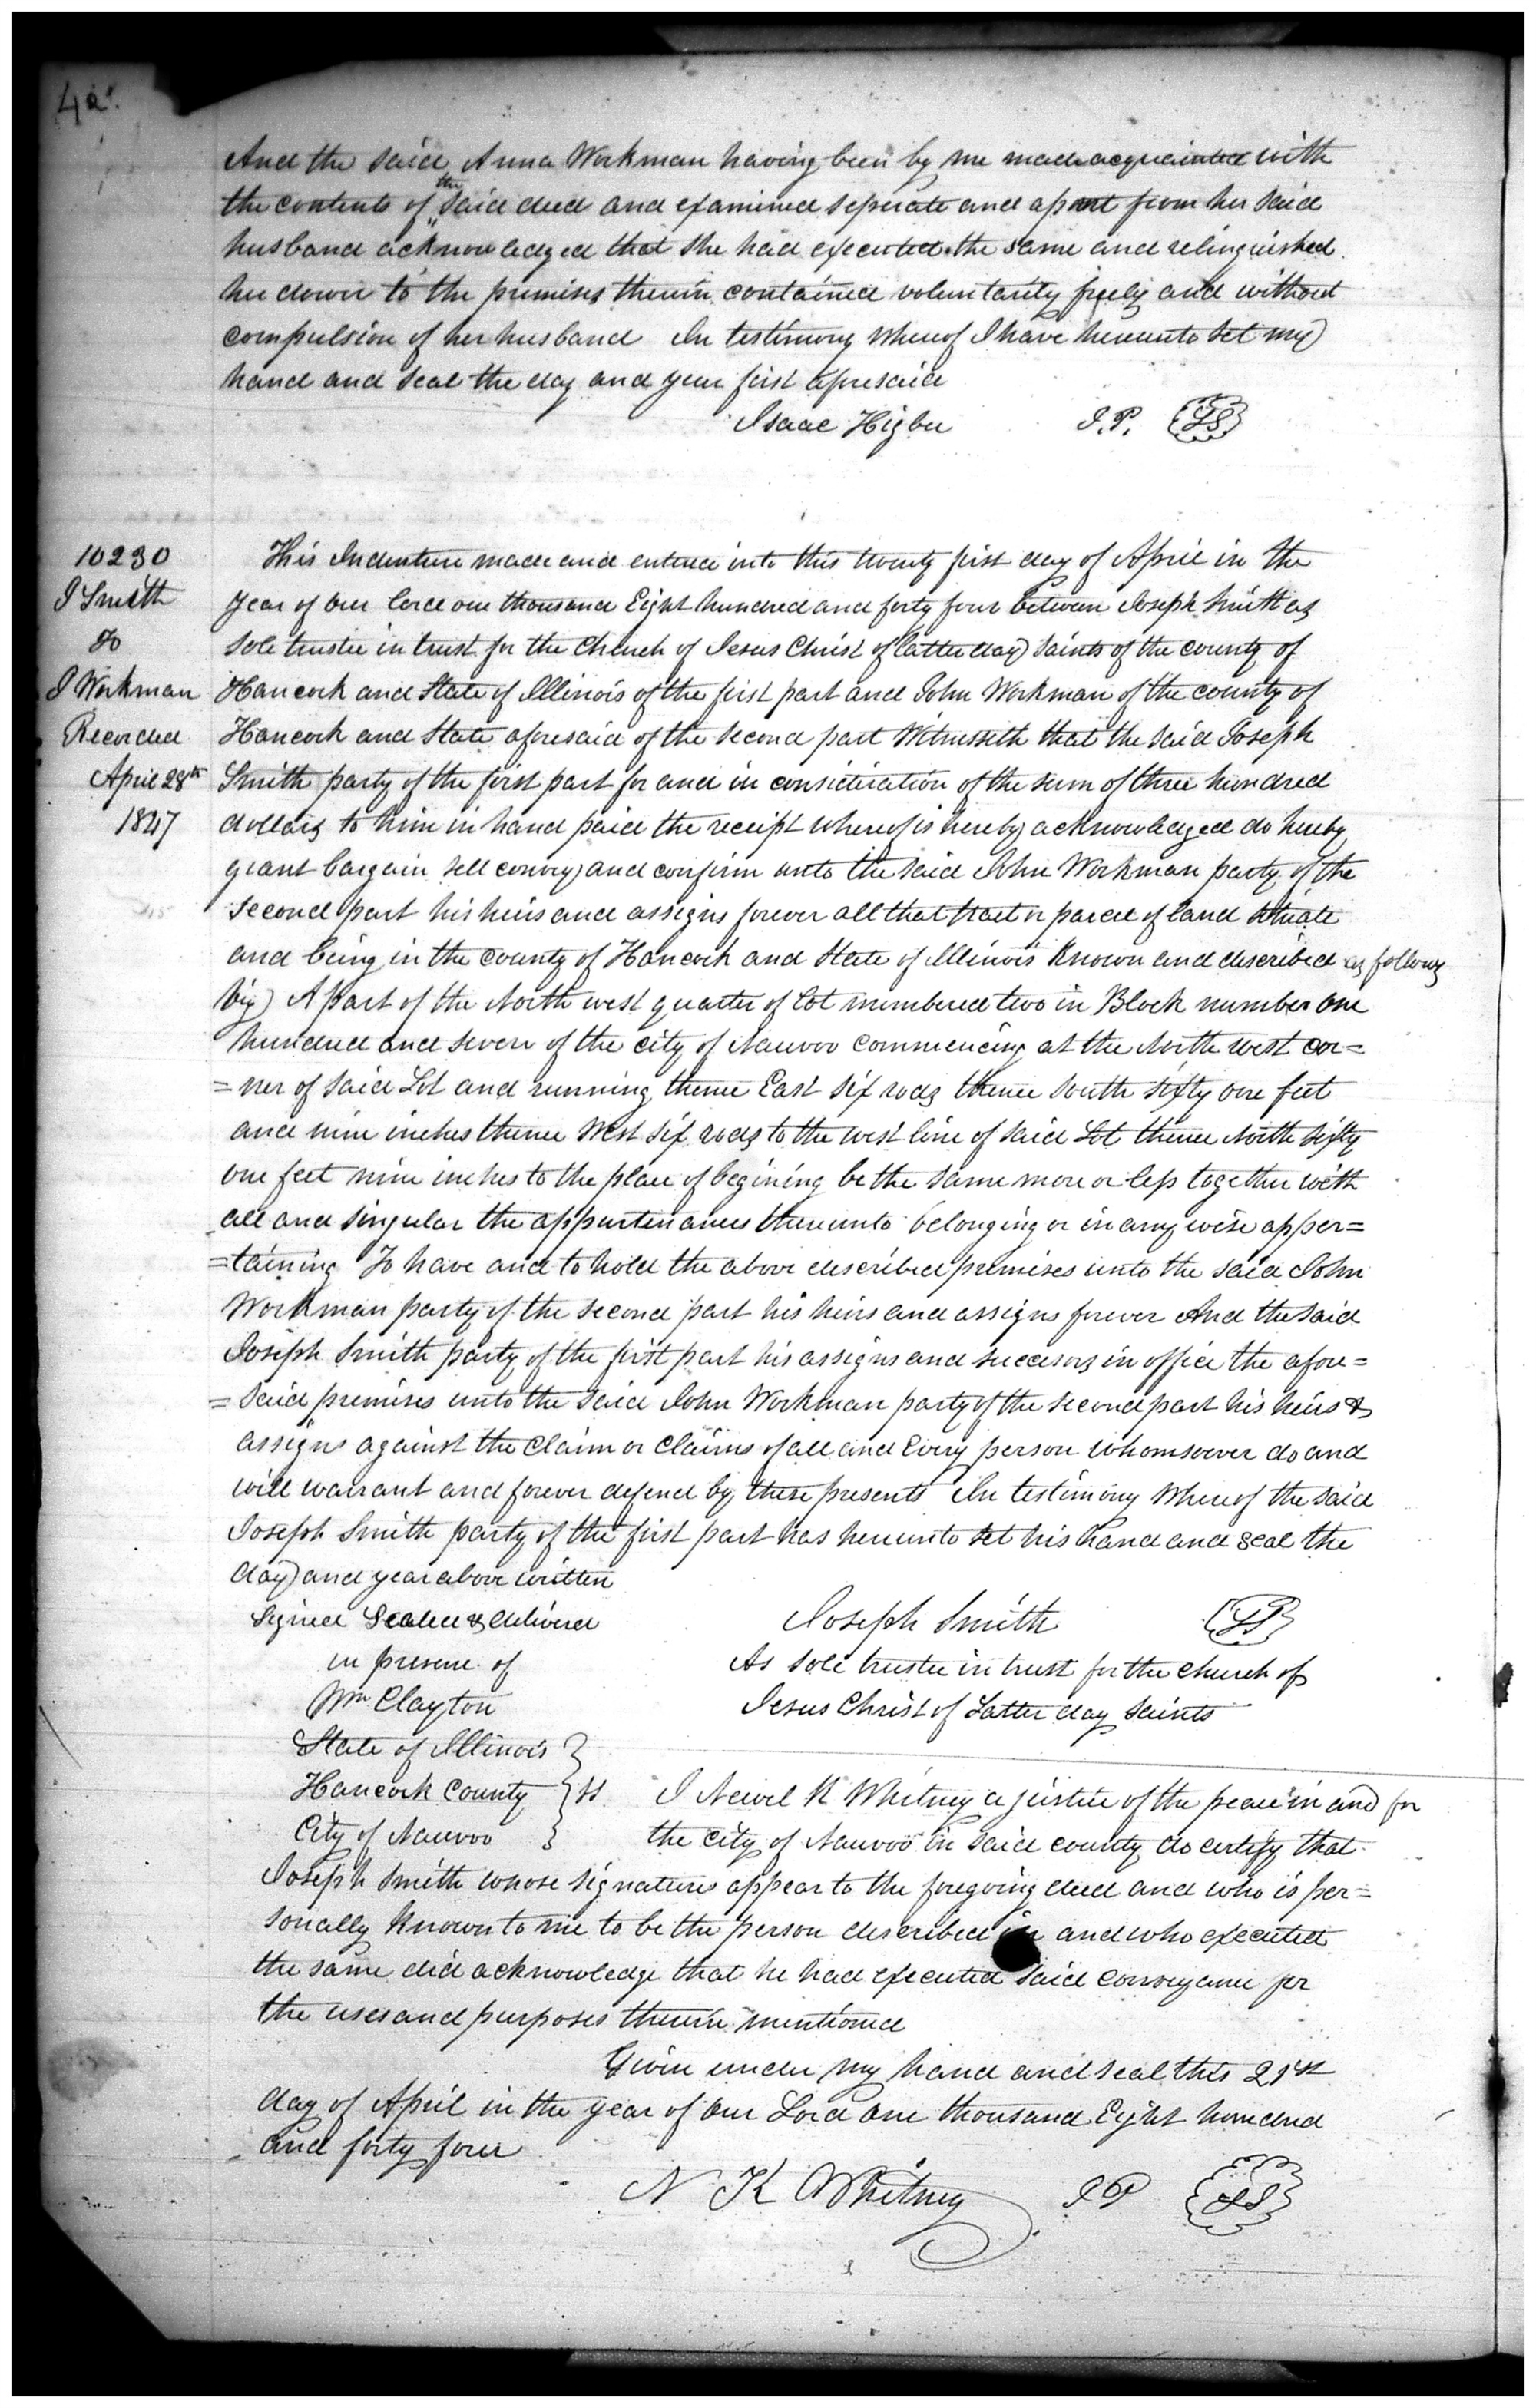 And the said Anna Workman having been by me made acquainted with
the contents of the said deed and examined seperate and apart from her said
husband acknowledged that she had executed the same and relinquished
her dower to the premises therein contained voluntarily freely and without
compulsion of her husband In testimony whereof I have hereunto set my
hand and seal the day and year first aforesaid
Isaac Higbee J.P. LS
10230
J Smith
To
J Workman
Recorded
April 28th
1847
This Indenture made and entered into this twenty first day of April in the
year of our Lord one thousand Eight hundred and forty four between Joseph Smith as
sole trustee in trust for the Church of Jesus Christ of latter day saints of the county of
Hancock and State of Illinois of the first part and John Workman of the county of
Hancock and State aforesaid of the second part Witnesseth that the said Joseph
Smith party of the first part for and in consideration of the sum of three hundred
dollars to him in hand paid the receipt whereof is hereby acknowledged do hereby
grant bargain sell convey and confirm unto the said John Workman party of the
second part his heirs and assigns forever all that tract or parcel of land situate
and being in the county of Hancock and State of Illinois Known and described as follows
viz) A part of the North west quarter of lot numbered two in Block number one
hundred and seven of the city of Nauvoo commencing at the North west cor=
=ner of said Lot and running thence East six rods thence south sixty one feet
and nine inches thence West six rods to the west line of said Lot thence North sixty
one feet nine inches to the place of begining be the same more or less together with
all and singular the appurtenances thereunto belonging or in any wise apper=
=taining To have and to hold the above described premises unto the said John
Workman party of the second part his heirs and assigns forever And the said
Joseph Smith party of the first part his assigns and succesors in office the afore=
=said premises unto the said John Workman party of the second part his heirs &
assigns against the claim or claims of all and Every person whomsoever do and
will warrant and forever defend by these presents In testimony Whereof the said
Joseph Smith party of the first part has hereunto set his hand and seal the
day and year above written
Signed Sealed & delivered Joseph Smith LS
in presence of As sole trustee in trust for the church of
Wm Clayton Jesus Christ of Latter day saints
State of Illinois
Hancock County } ss I Newel K Whitney a justice of the peace in and for
City of Nauvoo the city of Nauvoo in said county do certify that
Joseph Smith whose signature appear to the foregoing deed and who is per=
sonally Known to me to be the person described in and who executed
the same did acknowledge that he had executed said conveyance for
the uses and purposes therein mentioned
Given under my hand and seal this 21st
day of April in the year of our Lord one thousand Eight hundred
and forty four
N K Whitney J P LS